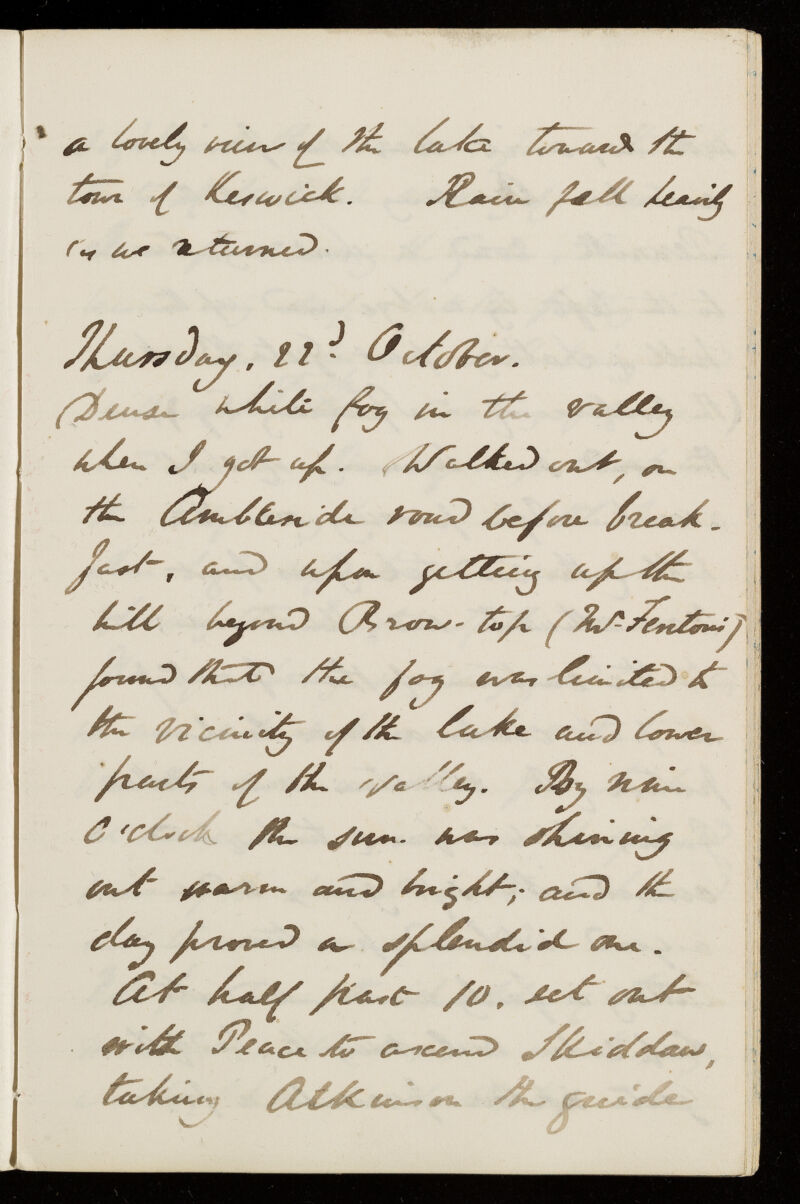 a lovely view of the lake towards the
town of Keswick. Rain fell heavily
as we returned.
Thursday, 22d. October.
Dense white fog in the valley
when I got up. Walked out, on
the Ambleside road before break-
fast, and upon getting up the
hill beyond Brow-top (Mr Fenton's)
found that the fog was limited to
the vicinity of the lake and lower
parts of the valley. By nine
O'clock the sun was shining
out warm and bright; and the
day proved a splendid one.
At half past 10. set out
with Peace to ascend Skiddaw,
taking Atkinson the guide